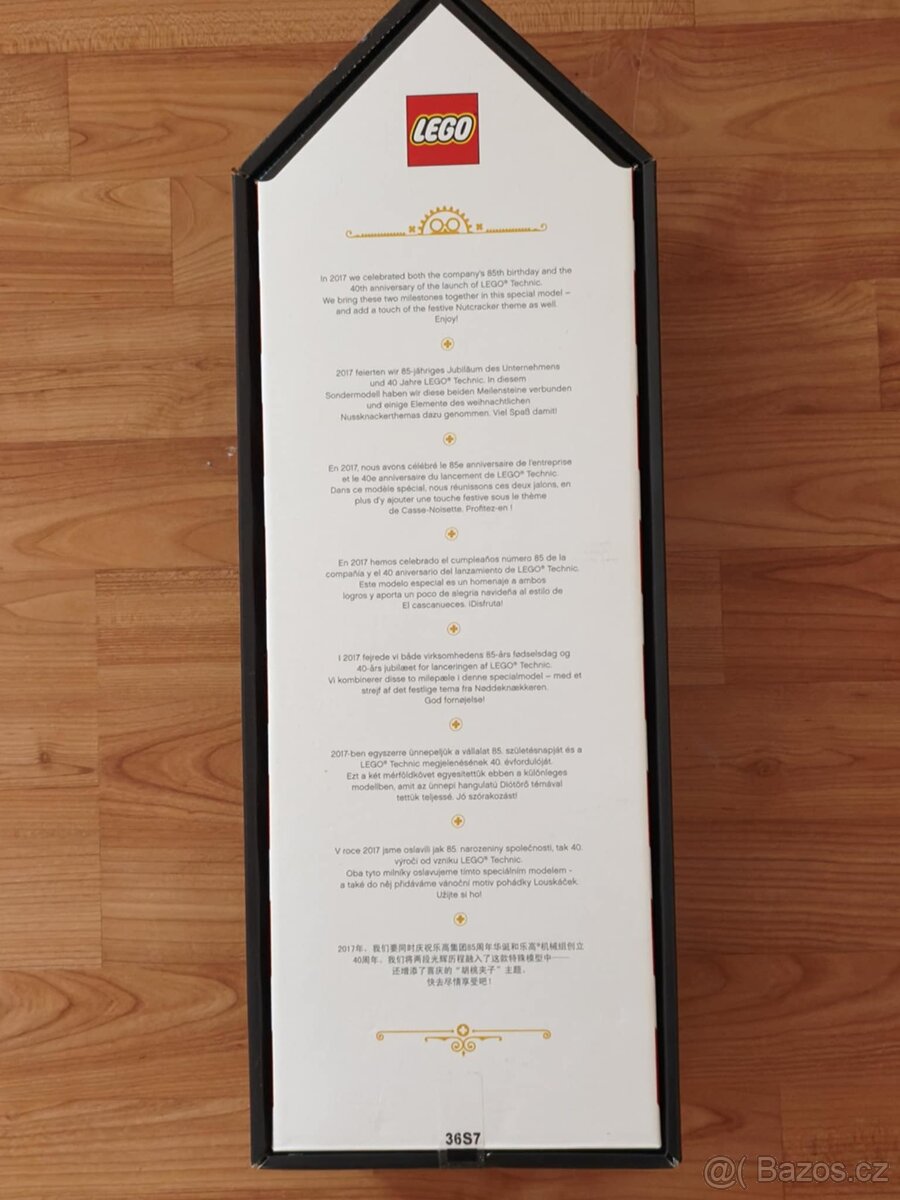 LEGO
In 2017 we celebrated both the company's 85th birthday and the
40th anniversary of the launch of LEGO® Technic.
We bring these two milestones together in this special model –
and add a touch of the festive Nutcracker theme as well.
Enjoy!
2017 feierten wir 85-jähriges Jubiläum des Unternehmens
und 40 Jahre LEGO® Technic. In diesem
Sondermodell haben wir diese beiden Meilensteine verbunden
und einige Elemente des weihnachtlichen
Nussknackerthemas dazu genommen. Viel Spaß damit!
En 2017, nous avons célébré le 85e anniversaire de l'entreprise
et le 40e anniversaire du lancement de LEGO® Technic.
Dans ce modèle spécial, nous réunissons ces deux jalons, en
plus d'y ajouter une touche festive sous le thème
de Casse-Noisette. Profitez-en !
En 2017 hemos celebrado el cumpleaños número 85 de la
compañía y el 40 aniversario del lanzamiento de LEGO® Technic.
Este modelo especial es un homenaje a ambos
logros y aporta un poco de alegría navideña al estilo de
El cascanueces. ¡Disfruta!
I 2017 fejrede vi både virksomhedens 85-års fødselsdag og
40-års jubilæet for lanceringen af LEGO® Technic.
Vi kombinerer disse to milepæle i denne specialmodel – med et
strejf af det festlige tema fra Nøddeknækkeren.
God fornøjelse!
2017-ben egyszerre ünnepeljük a vállalat 85. születésnapját és a
LEGO® Technic megjelenésének 40. évfordulóját.
Ezt a két mérföldkövet egyesítettük ebben a különleges
modellben, amit az ünnepi hangulatú Diótörő témával
tettük teljessé. Jó szórakozást!
V roce 2017 jsme oslavili jak 85. narozeniny společnosti, tak 40.
výročí od vzniku LEGO® Technic.
Oba tyto milníky oslavujeme tímto speciálním modelem -
a také do něj přidáváme vánoční motiv pohádky Louskáček.
Užijte si ho!
2017年，我们要同时庆祝乐高集团85周年华诞和乐高®机械组创立
40周年。我们将两段光辉历程融入了这款特殊模型中——
还增添了喜庆的“胡桃夹子”主题。
快去尽情享受吧！
36S7
@( Bazos.cz